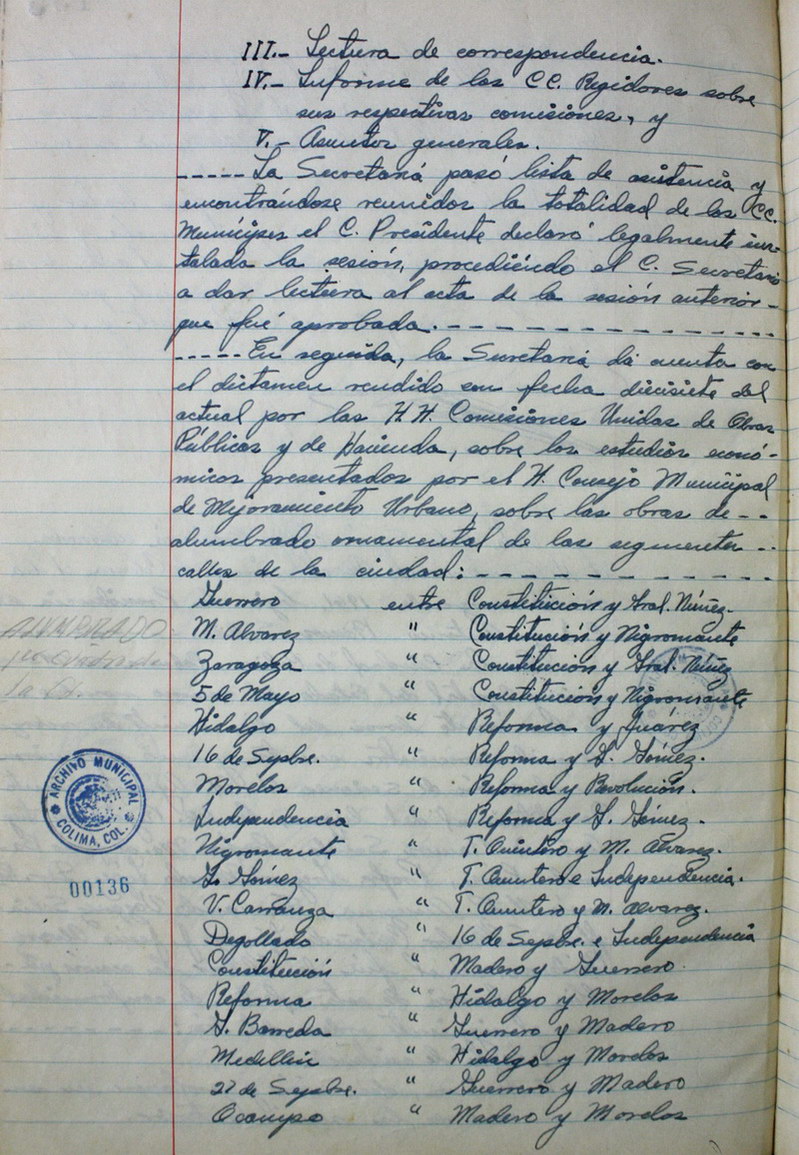 III.- Lectura de correspondencia.
IV.- Informe de los CC. Regidores sobre
sus respectivas comisiones, y
V.- Asuntos generales.
-----La Secretaría pasó lista de asistencia y
encontrándose reunidos la totalidad de los CC.
Munícipes el C. Presidente declaró legalmente ins-
talada la sesión, procediendo el C. Secretario
a dar lectura al acta de la sesión anterior-
que fué aprobada.----------------
-----En seguida, la Secretaría dá cuenta con
el dictamen rendido con fecha diecisiete del
actual por las H.H. Comisiones Unidas de Obras
Públicas y de Hacienda, sobre los estudios econó-
micos presentados por el H. Consejo Municipal
de Mejoramiento Urbano, sobre las obras de--
alumbrado ornamental de las siguientes--
calles de la ciudad:---------------
Guerrero entre Constitución y Gral. Núñez.
M. Alvarez " Constitución y Nigromante
Zaragoza " Constitución y Gral. Núñez
5 de Mayo " Constitución y Nigromante
Hidalgo " Reforma y Juárez
16 de Sepbre. " Reforma y G. Gómez.
Morelos " Reforma y Revolución.
Independencia " Reforma y G. Gómez.
Nigromante " T. Quintero y M. Alvarez.
G. Gómez " T. Quintero e Independencia.
V. Carranza " T. Quintero y M. Alvarez.
Degollado " 16 de Sepbre. e Independencia
Constitución " Madero y Guerrero.
Reforma " Hidalgo y Morelos
G. Barreda " Guerrero y Madero
Medellín " Hidalgo y Morelos
27 de Sepbre. " Guerrero y Madero
Ocampo " Madero y Morelos
ALUMBRADO
ARCHIVO MUNICIPAL
COLIMA, COL.
00136